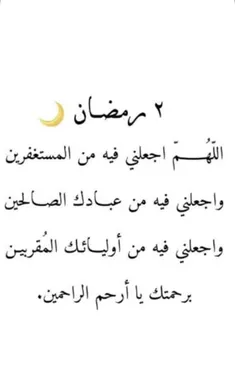 ٢ رمضان 🌙
اللّهُمّ اجعلني فيه من المستغفرين
واجعلني فيه من عبادك الصالحين
واجعلني فيه من أوليائك المُقربين
برحمتك يا أرحم الراحمين.